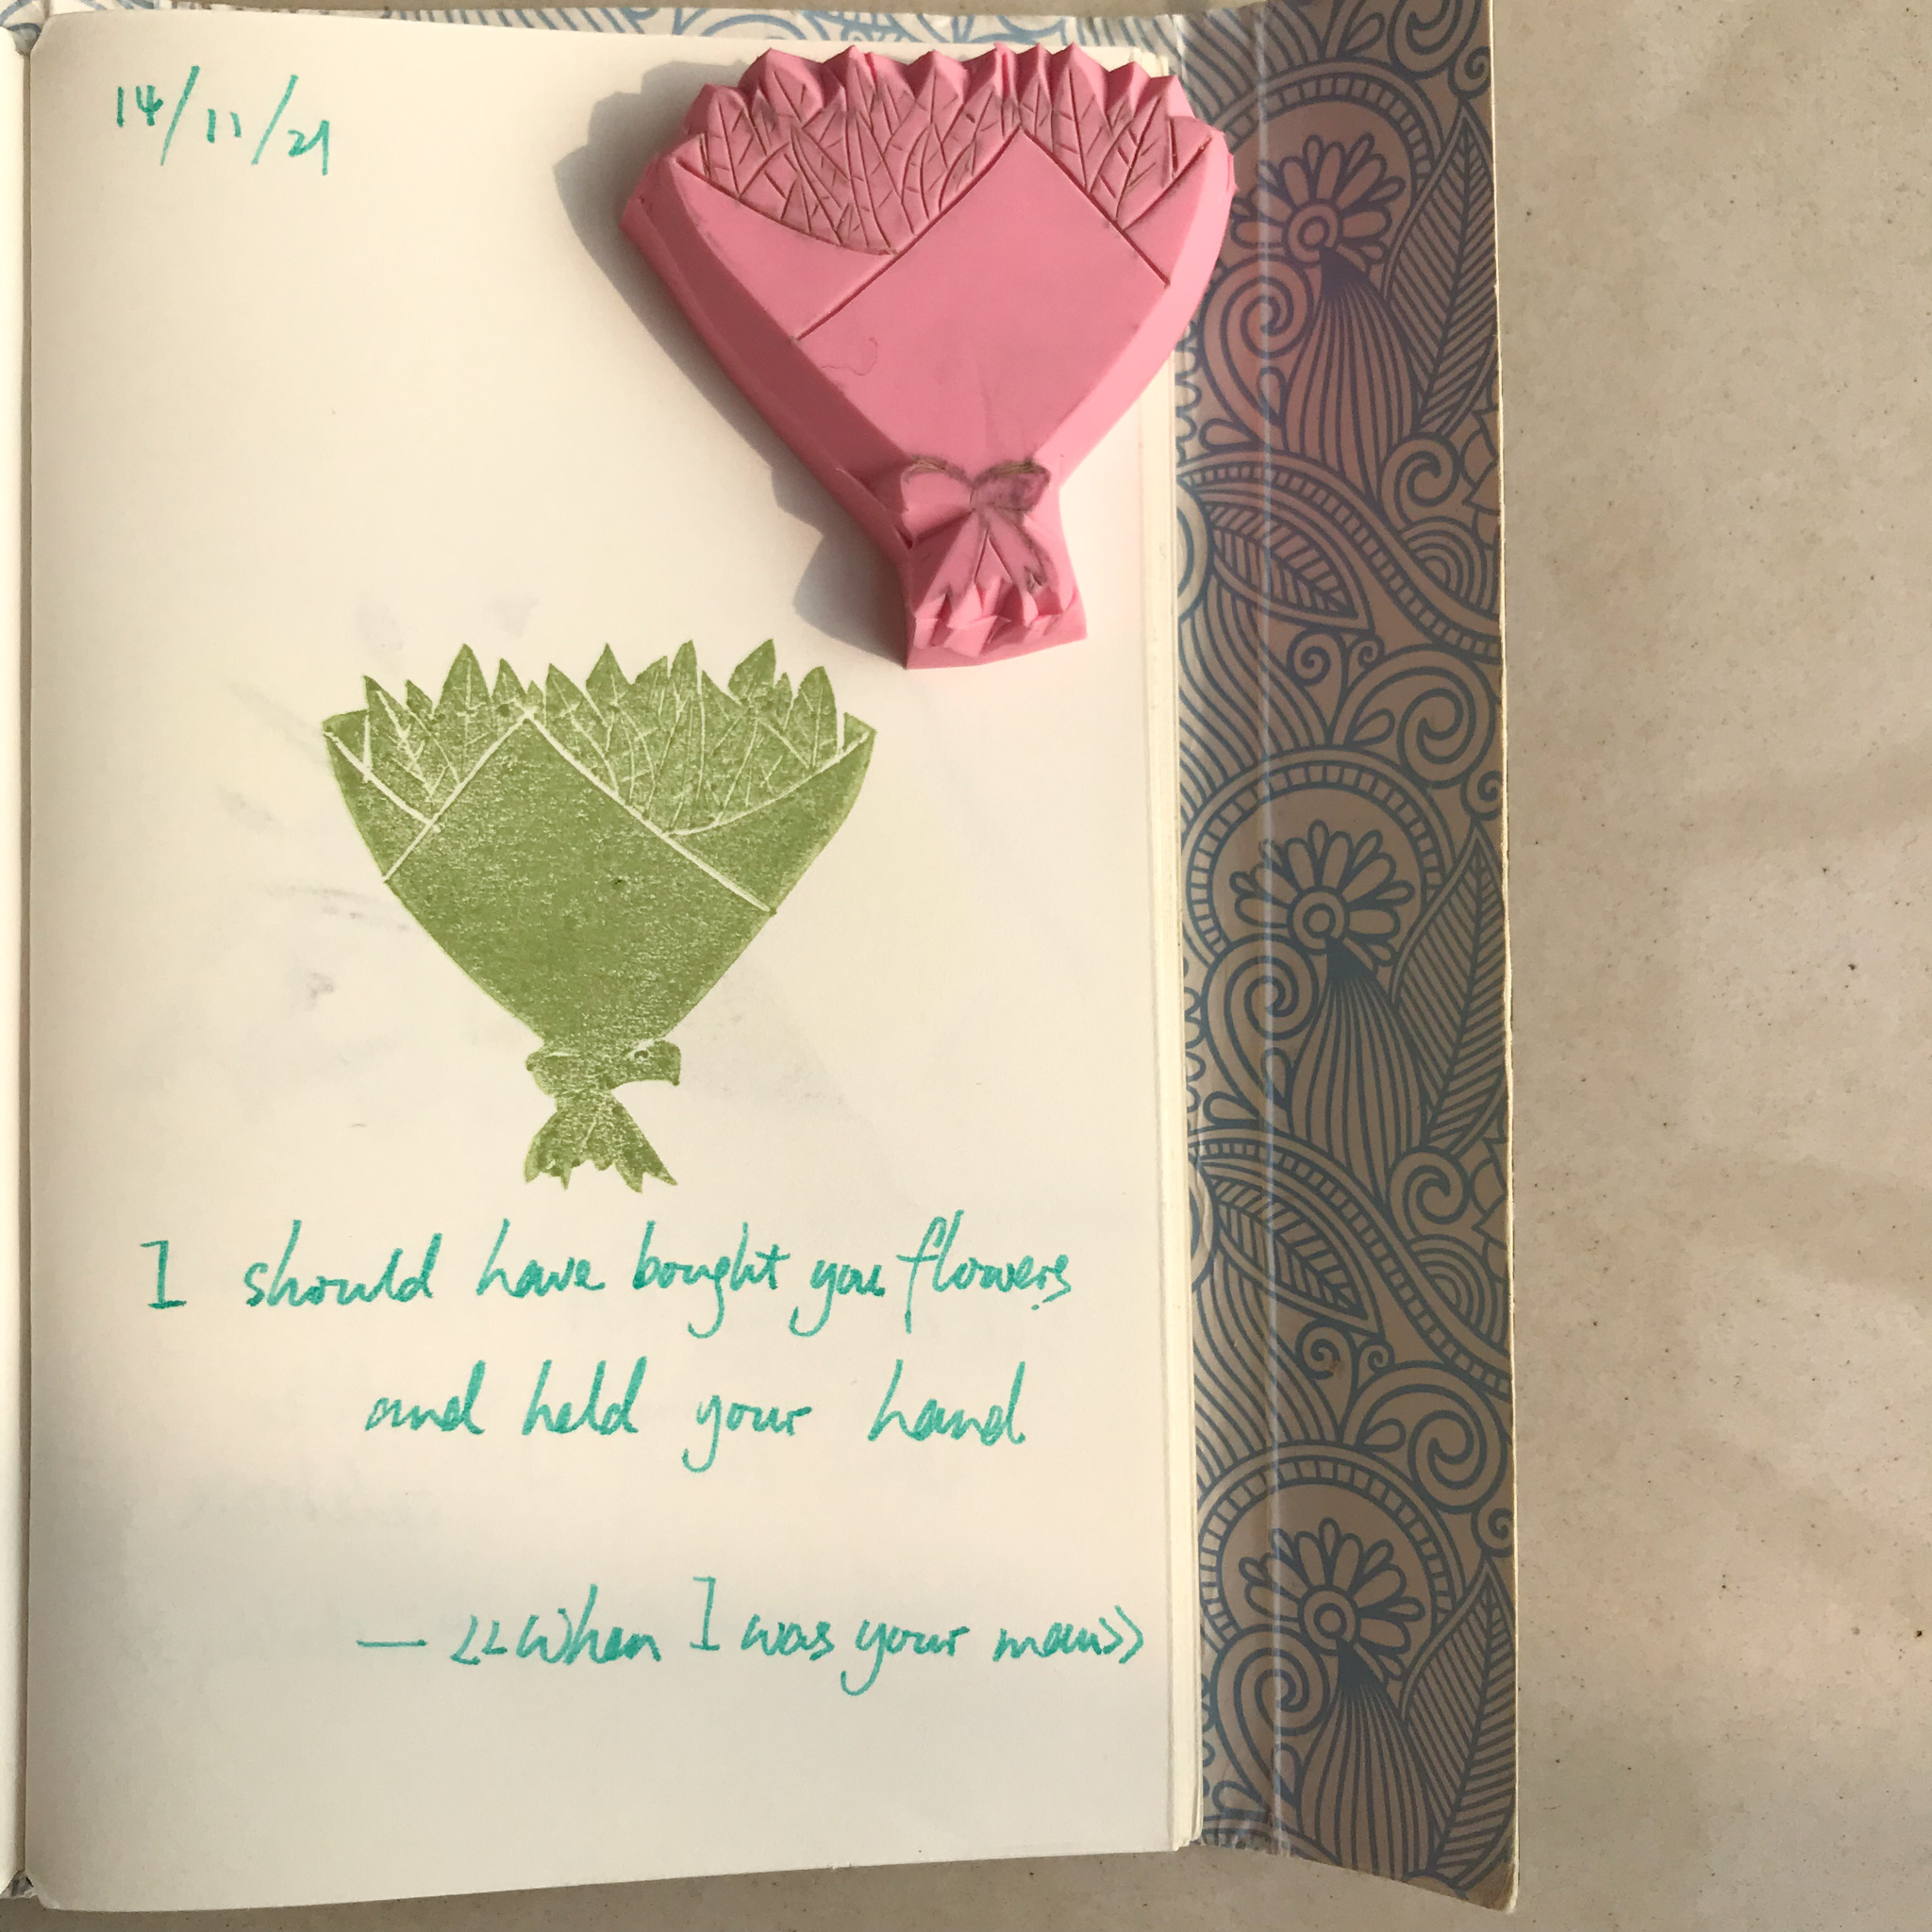 14/11/21
I should have bought you flowers
and held your hand
— <<When I was your man>>